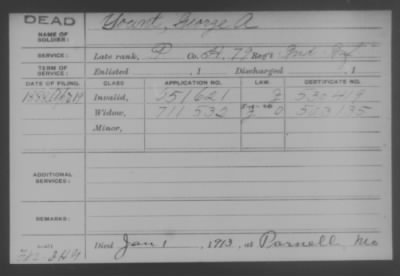 DEAD
Yount, George A
NAME OF SOLDIER:
SERVICE: Late rank, P Co. H, 79 Reg't Ind Inf
TERM OF SERVICE: Enlisted , 1 Discharged , 1
DATE OF FILING. CLASS APPLICATION NO. LAW. CERTIFICATE NO.
Invalid, 551621 530419
Widow, 711532
Minor,
ADDITIONAL SERVICES:
REMARKS:
Died Jan 1, 1913, at Parnell Mo